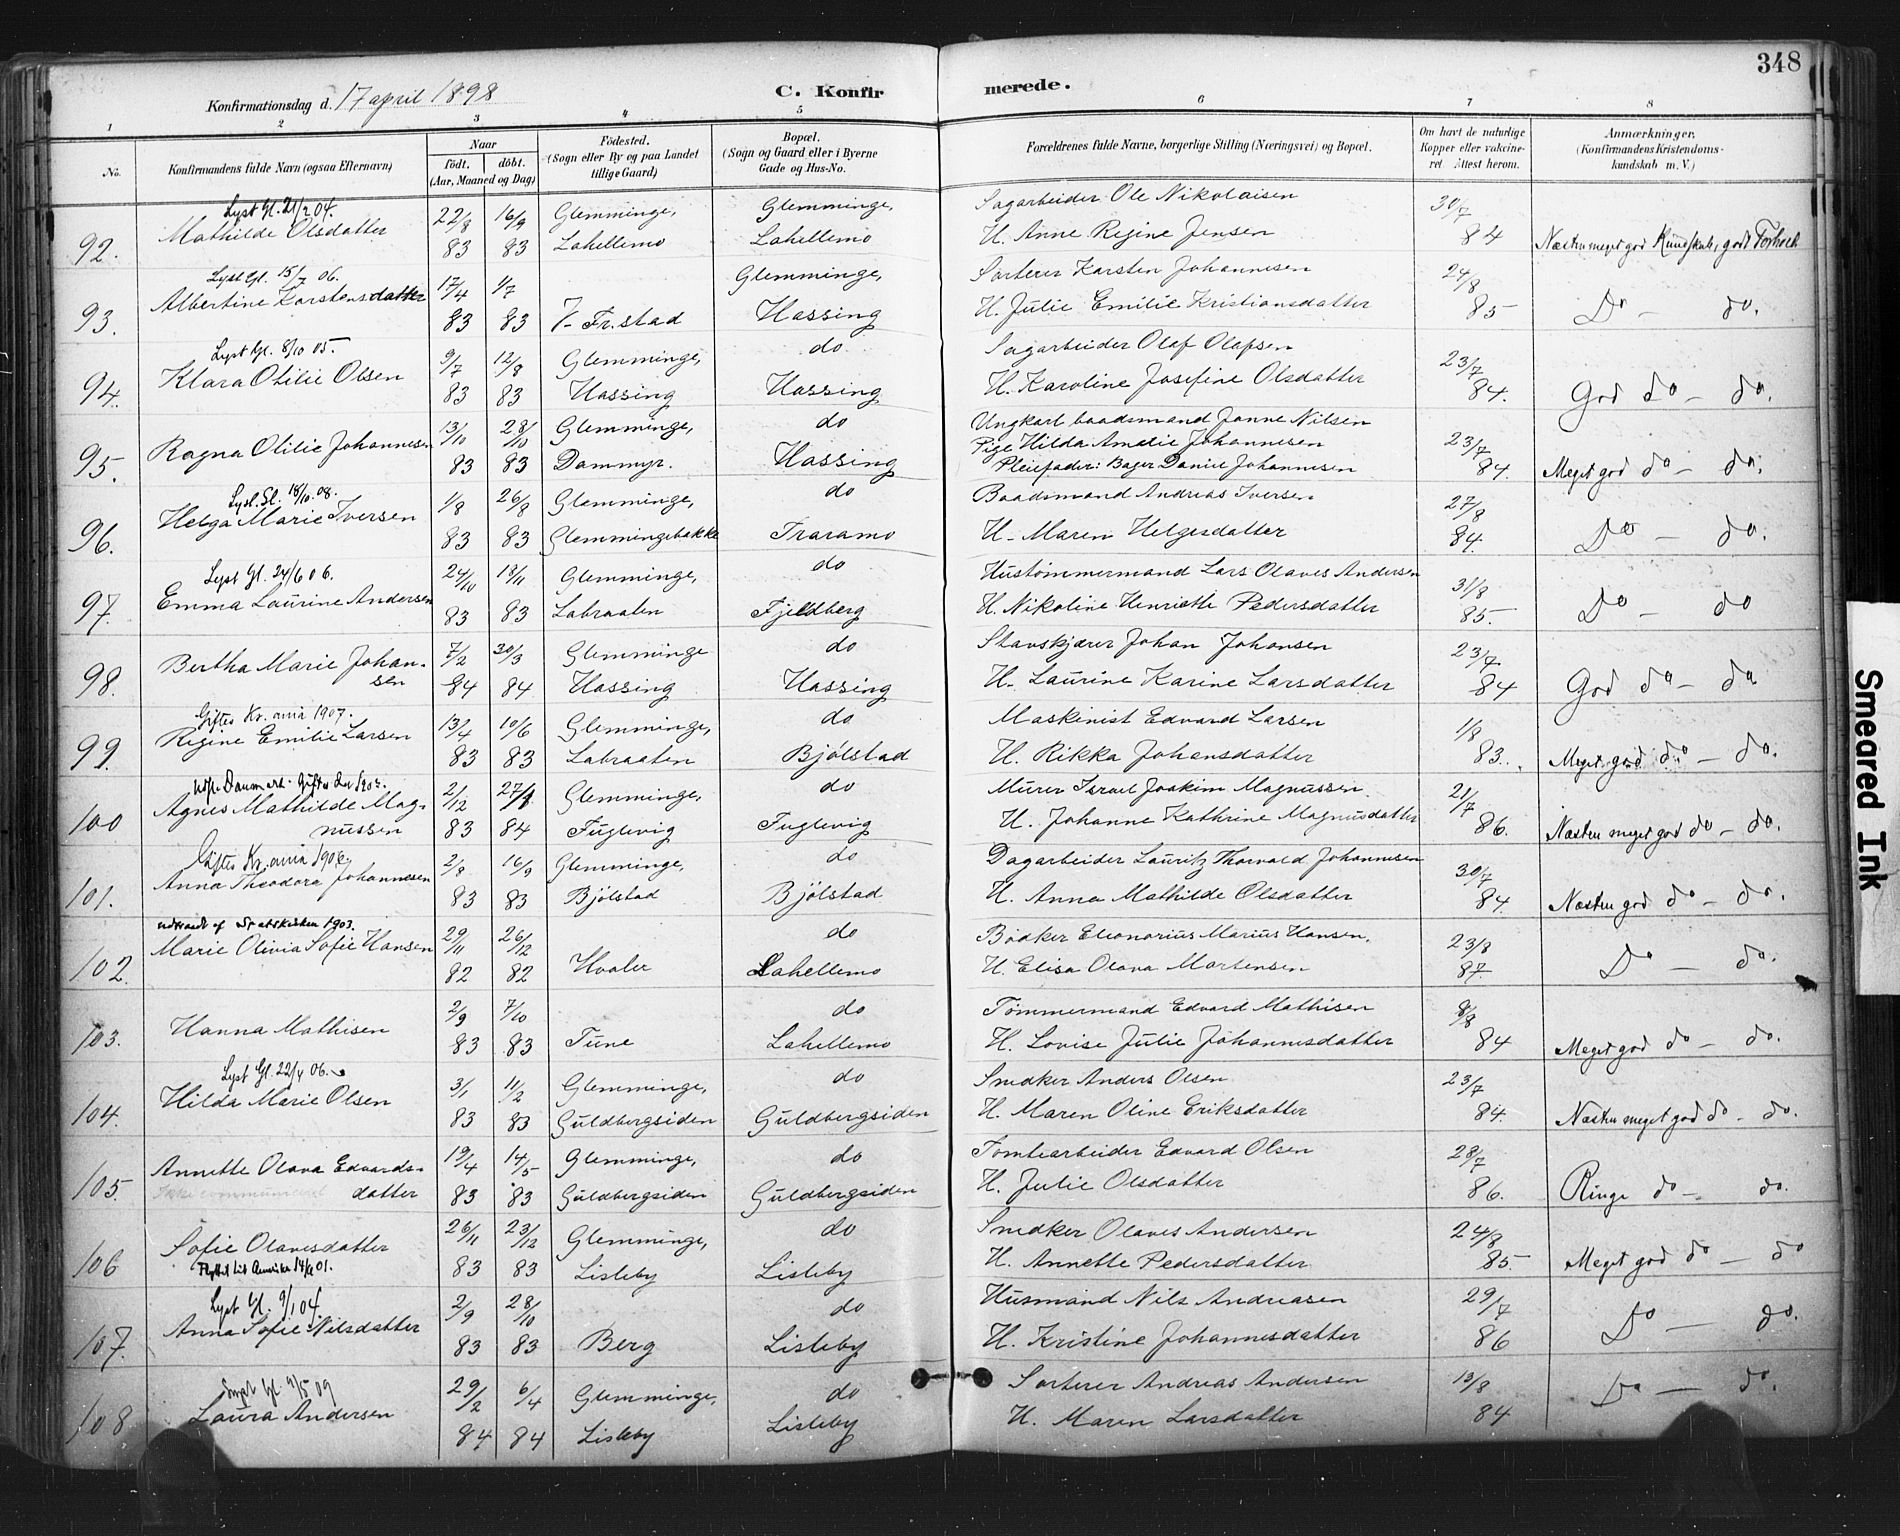 348
Konfirmationsdag d. 17 april 1898
C. Konfirmerede.
1 2 3 4 5 6 7 8
No.
Konfirmandens fulde Navn (ogsaa Efternavn)
Naar
født. døbt.
(Aar, Maaned og Dag)
Fødested.
(Sogn eller By og paa Landet tillige Gaard)
Bopæl.
(Sogn og Gaard eller i Byerne Gade og Hus-No.
Forældrenes fulde Navne, borgerlige Stilling (Næringsvei) og Bopæl.
Om havt de naturlige Kopper eller vakcineret. Attest herom.
Anmærkninger.
(Konfirmandens Kristendomskundskab m. V.)
Lyst Gl. 21/2 04.
92. Mathilde Olsdatter 22/8 83 16/9 83 Glemminge, Lahellemo Glemminge, Lahellemo
Sagarbeider Ole Nikolaisen
H. Anne Regine Jensen 30/7 84 Næsten meget god Kundskab, godt Forhold
Lyst Gl. 15/7 06.
93. Albertine Karstensdatter 17/4 83 1/7 83 V. Fr.stad Glemminge, Hassing
Sorterer Karsten Johannesen
H. Julie Emilie Kristiansdatter 24/8 85 Do — do.
Lyst Gl. 8/10 05.
94. Klara Otilie Olsen 9/7 83 12/8 83 Glemminge, Hassing do Hassing
Sagarbeider Olaf Olafsen
H. Karoline Josefine Olsdatter 23/7 84. God do — do.
95. Ragna Otilie Johannesen 13/10 83 28/10 83 Glemminge, Dammyr. do Hassing
Ungkarl baadsmand Janne Nilsen
Pige Hilda Amalie Johannesen
Pleiefader: Bager Daniel Johannesen 23/7 84. Meget god do — do.
Lyst. Gl. 18/10 08.
96. Helga Marie Iversen 1/8 83 26/8 83 Glemminge, Glemmingebakke do Traramo
Baadsmand Andreas Iversen
H. Maren Helgesdatter 27/8 84. Do — do.
Lyst Gl. 24/6 06.
97. Emma Laurine Andersen 24/10 83 18/11 83 Glemminge, Labraaten do Fjeldberg
Hustømmermand Lars Olaves Andersen
H. Nikoline Henriette Pedersdatter 31/8 85. Do — do
98. Bertha Marie Johansen 7/2 84 30/3 84 Glemminge Hassing do Hassing
Stavskjærer Johan Johansen
H. Laurine Karine Larsdatter 23/7 84 God do — do
Giftes Kr.ania 1907.
99. Regine Emilie Larsen 13/4 83 10/6 83 Glemminge, Labraaten do Bjølstad
Maskinist Edvard Larsen
H. Rikka Johansdatter 1/8 83. Meget god do — do.
100 Agnes Mathilde Magnussen 2/12 83 27/1 84 Glemminge, Fuglevig do Fuglevig
Murer Israel Joakim Magnussen
H. Johanne Kathrine Magnusdatter 21/7 86. Næsten meget god do — do.
Giftes Kr.ania 1906
101. Anna Theodora Johannesen 2/8 83 16/9 83 Glemminge, Bjølstad do Bjølstad
Dagarbeider Lauritz Thorvald Johannesen
H. Anna Mathilde Olsdatter 30/7 84. Næsten god do — do.
udtraadt af Statskirken 1903.
102 Marie Olivia Sofie Hansen 29/11 82 26/12 82 Hvaler do Lahellemo
Bødker Eleonorius Marius Hansen.
H. Elisa Olava Mortensen 23/8 87. Do — do.
103. Hanna Mathisen 2/9 83 7/10 83 Tune do Lahellemo
Tømmermand Edvard Mathisen
H. Lovise Julie Johannesdatter 8/8 84 Meget god do — do.
Lyst Gl. 22/4 06.
104. Hilda Marie Olsen 3/1 83 11/2 83 Glemminge, Guldbergsiden do Guldbergsiden
Snedker Anders Olsen
H. Maren Oline Eriksdatter 23/7 84. Næsten meget god do — do.
105. Annette Olava Edvardsdatter 19/4 83 14/5 83 Glemminge, Guldbergsiden do Guldbergsiden
Ikke communiceret
Tomtearbeider Edvard Olsen
H. Julie Olsdatter 28/7 86. Ringe do — do.
106 Sofie Olavesdatter 26/11 83 23/12 83 Glemminge, Lisleby do Lisleby
Flyttet til Amerika 14/9 01.
Snedker Olaves Andersen
H. Annette Pedersdatter 24/8 85. Meget god do — do
Lyst Gl. 9/1 04
107. Anna Sofie Nilsdatter 2/9 83 28/10 83 Berg do Lisleby
Husmand Nils Andreasen
H. Kristine Johannesdatter 29/7 86 Do — do.
Lyst Gl. 9/5 09
108 Laura Andersen 29/2 84 6/4 84 Glemminge, Lisleby do Lisleby
Sorterer Andreas Andersen
H. Maren Larsdatter 13/8 84 Do — do.
Smeared Ink